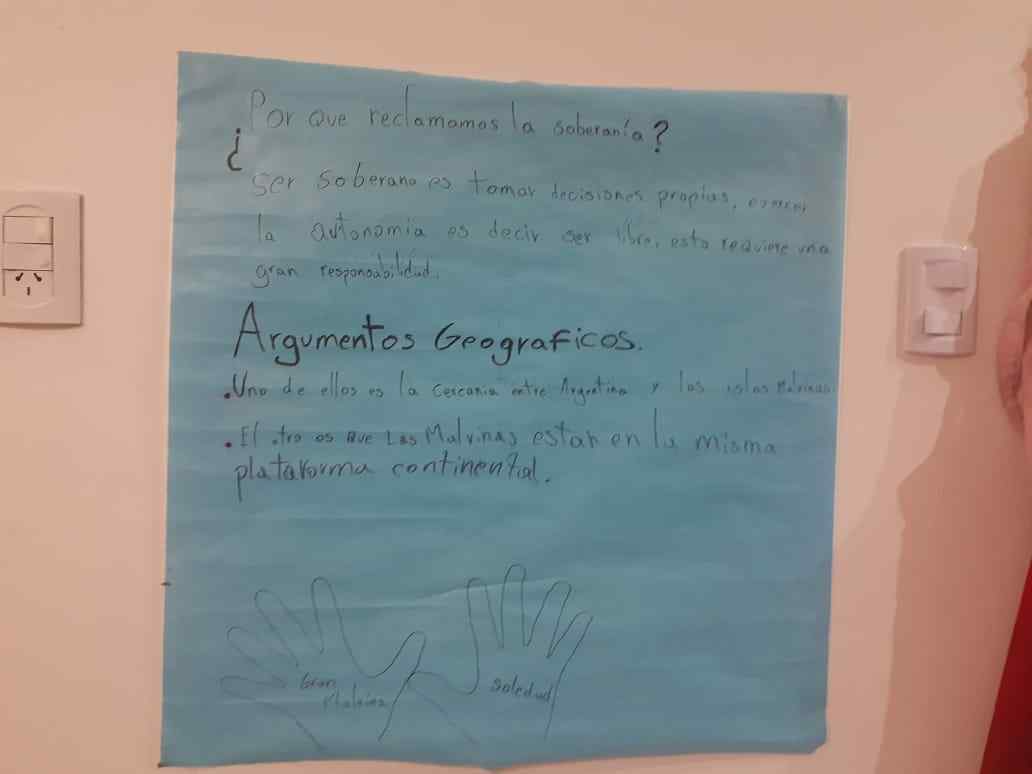 ¿Por que reclamamos la soberanía?
Ser soberano es tomar decisiones propias, ejercer
la autonomia es decir ser libre, esto requiere una
gran responsabilidad.
Argumentos Geograficos.
.Uno de ellos es la cercania entre Argentina y las islas Malvinas
.El otro es que Las Malvinas estan en la misma
plataforma continental.
Gran
Malvina
Soledad